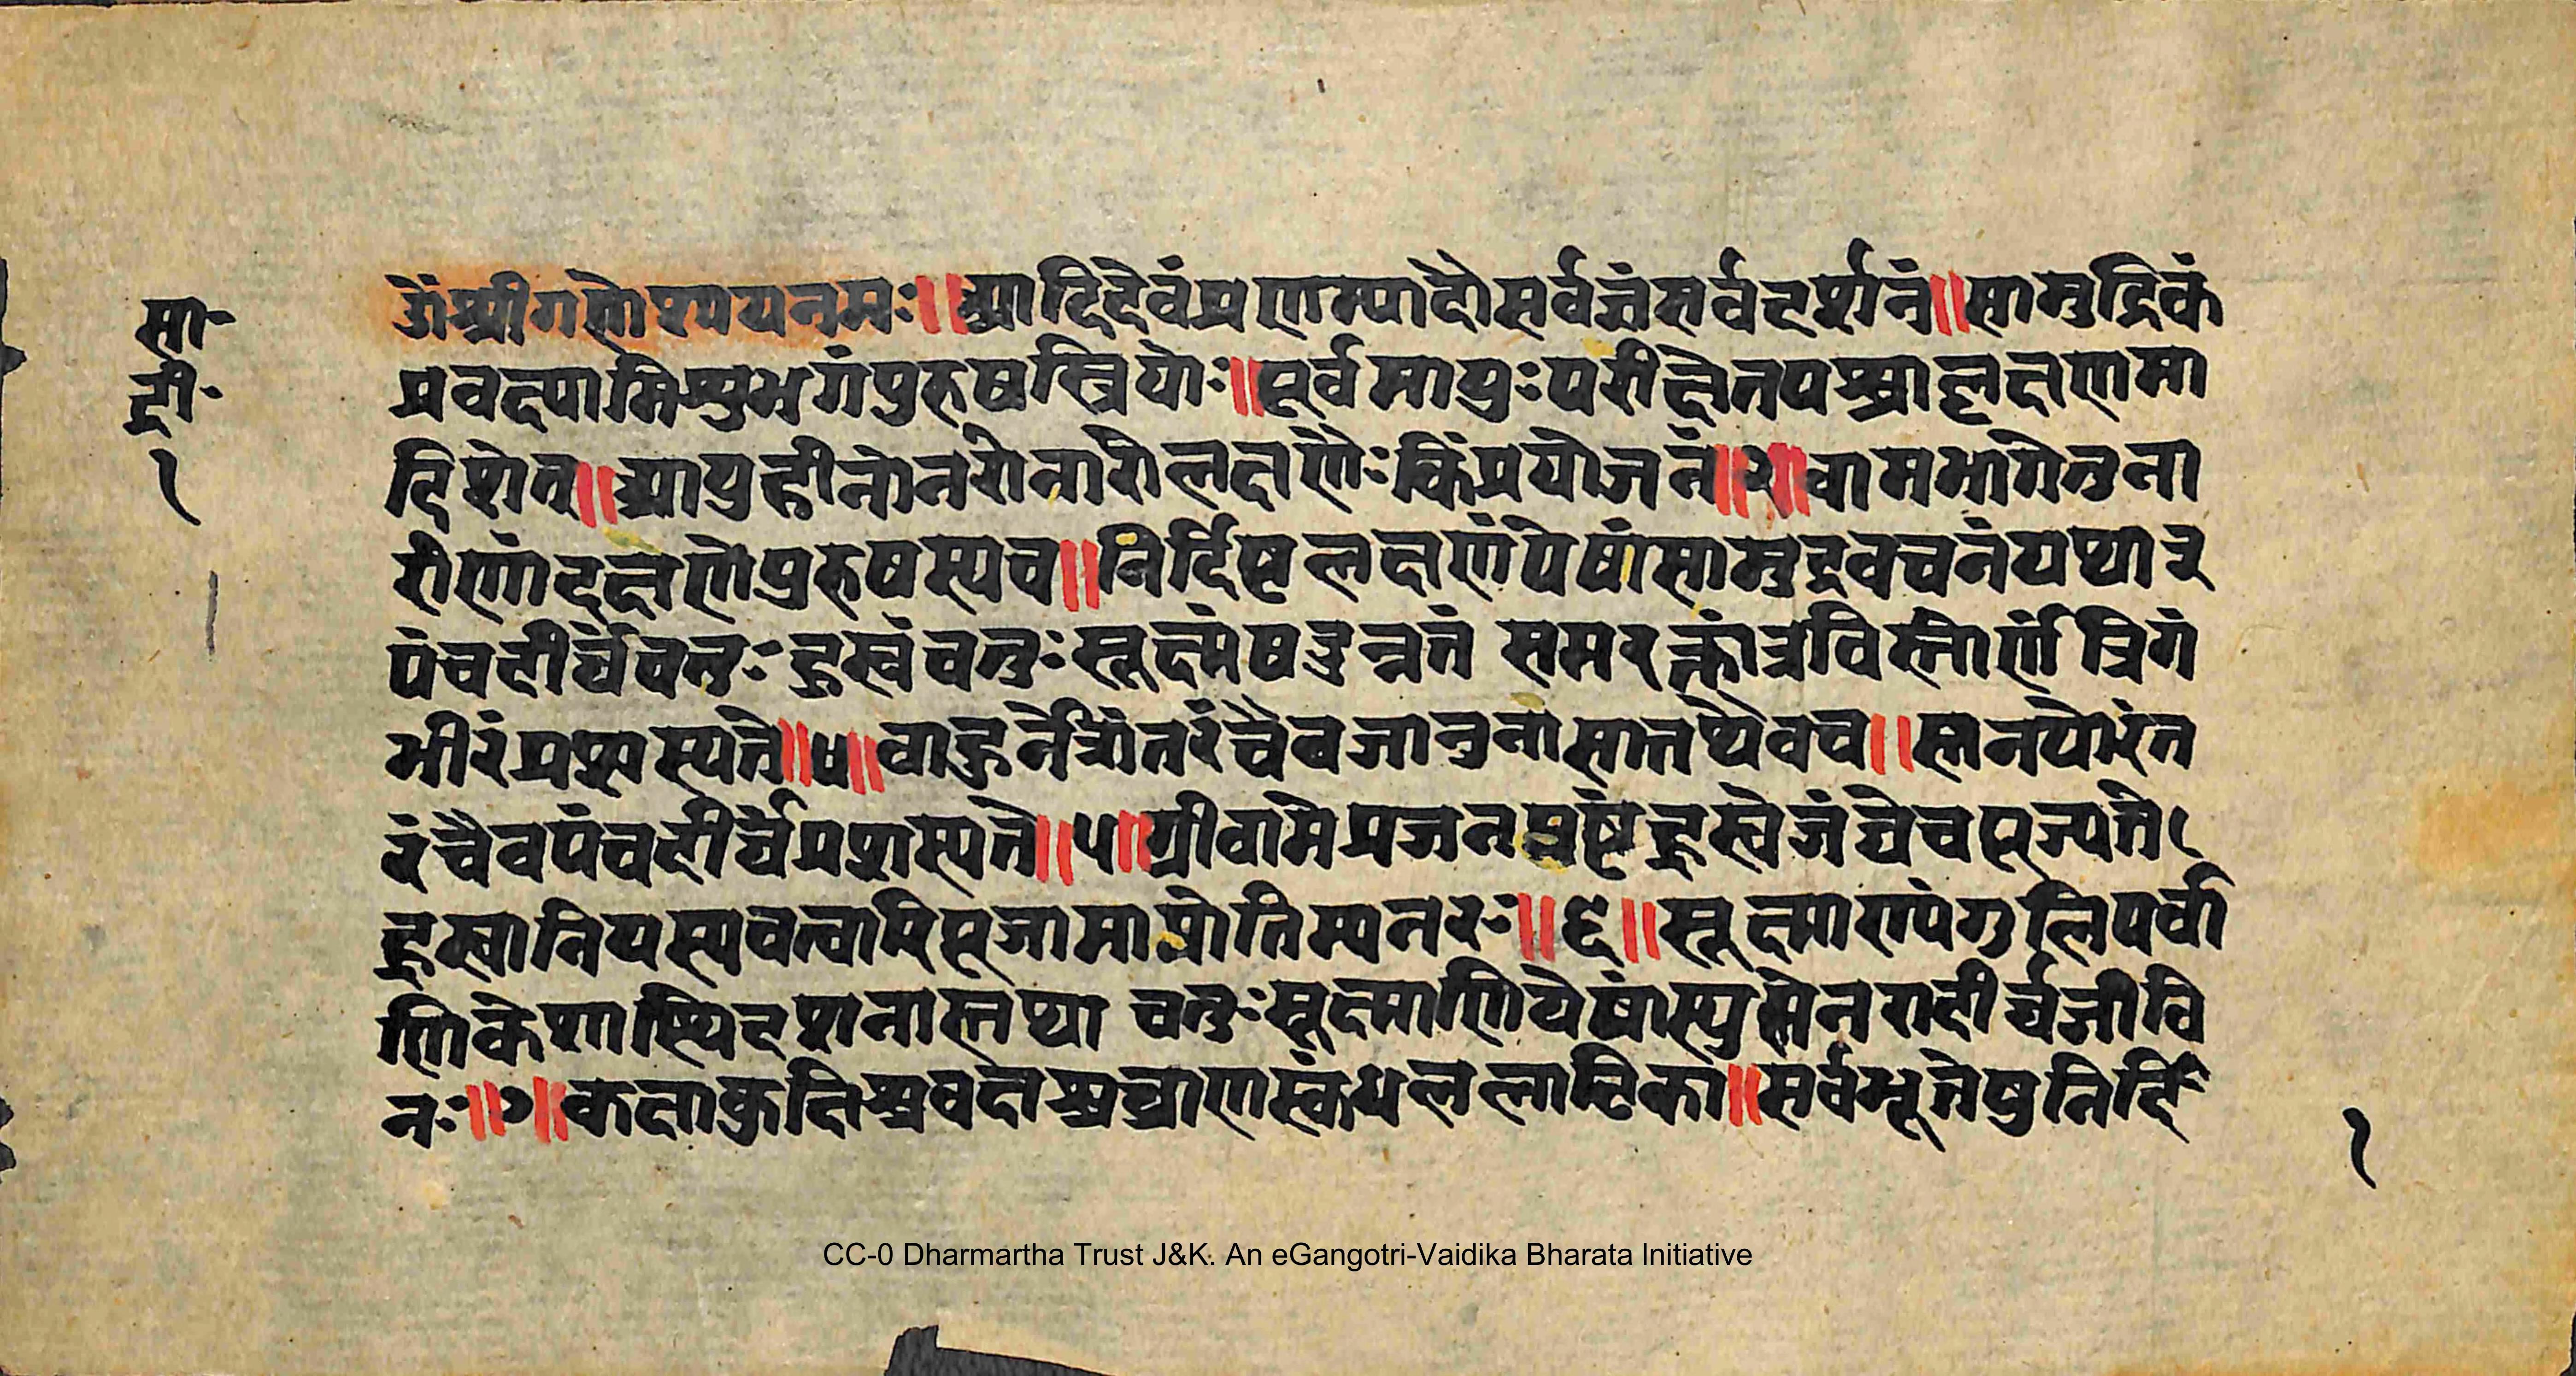 सा॰
द्री॰
१
ॐश्रीगणेशाययनमः॥आदिदेवंप्रणम्यादौसर्वज्ञंसर्वदर्शनं॥सामुद्रिकं
प्रवक्ष्यामिशुभगंपुरुषस्त्रियोः॥पूर्वमायुःपरीक्षेतपश्चाल्लक्षणमा
दिशेत्॥आयुहीनोनरोनारीलक्षणैःकिंप्रयोजनं॥२॥वामभागेतुना
रीणांदक्षिणेपुरुषस्यच॥निर्दिष्टलक्षणंयेषांसामुद्रवचनंयथा३
पंचदीर्घंचतुःह्रस्वंचतुःसूक्ष्मंषडुन्नतं समरक्तंत्रविस्तीर्णंत्रिगं
भीरंप्रशस्यते॥४॥वाहुनेत्रांतरंचैवजानुनासातथैवच॥स्तनयोरंत
रंचैवपंचदीर्घंप्रशस्यते॥५॥ग्रीवामेप्रजनपृष्टंह्रस्वेजंघेचपूज्यते१
ह्रस्वानियस्यचत्वारिपूजामाप्नोतिम्यनरः॥६॥सूक्ष्माण्यंगुलिपर्वा
णिकेशास्थिदशनास्तथा चतुःसूक्ष्माणियेषांस्युस्तेनरादीर्घजीवि
नः॥७॥कक्षाकुक्षिश्चवक्षश्चघ्राणस्कंधललाटिका॥सर्वभूतेषुनिर्दि
१
CC-0 Dharmartha Trust J&K. An eGangotri-Vaidika Bharata Initiative